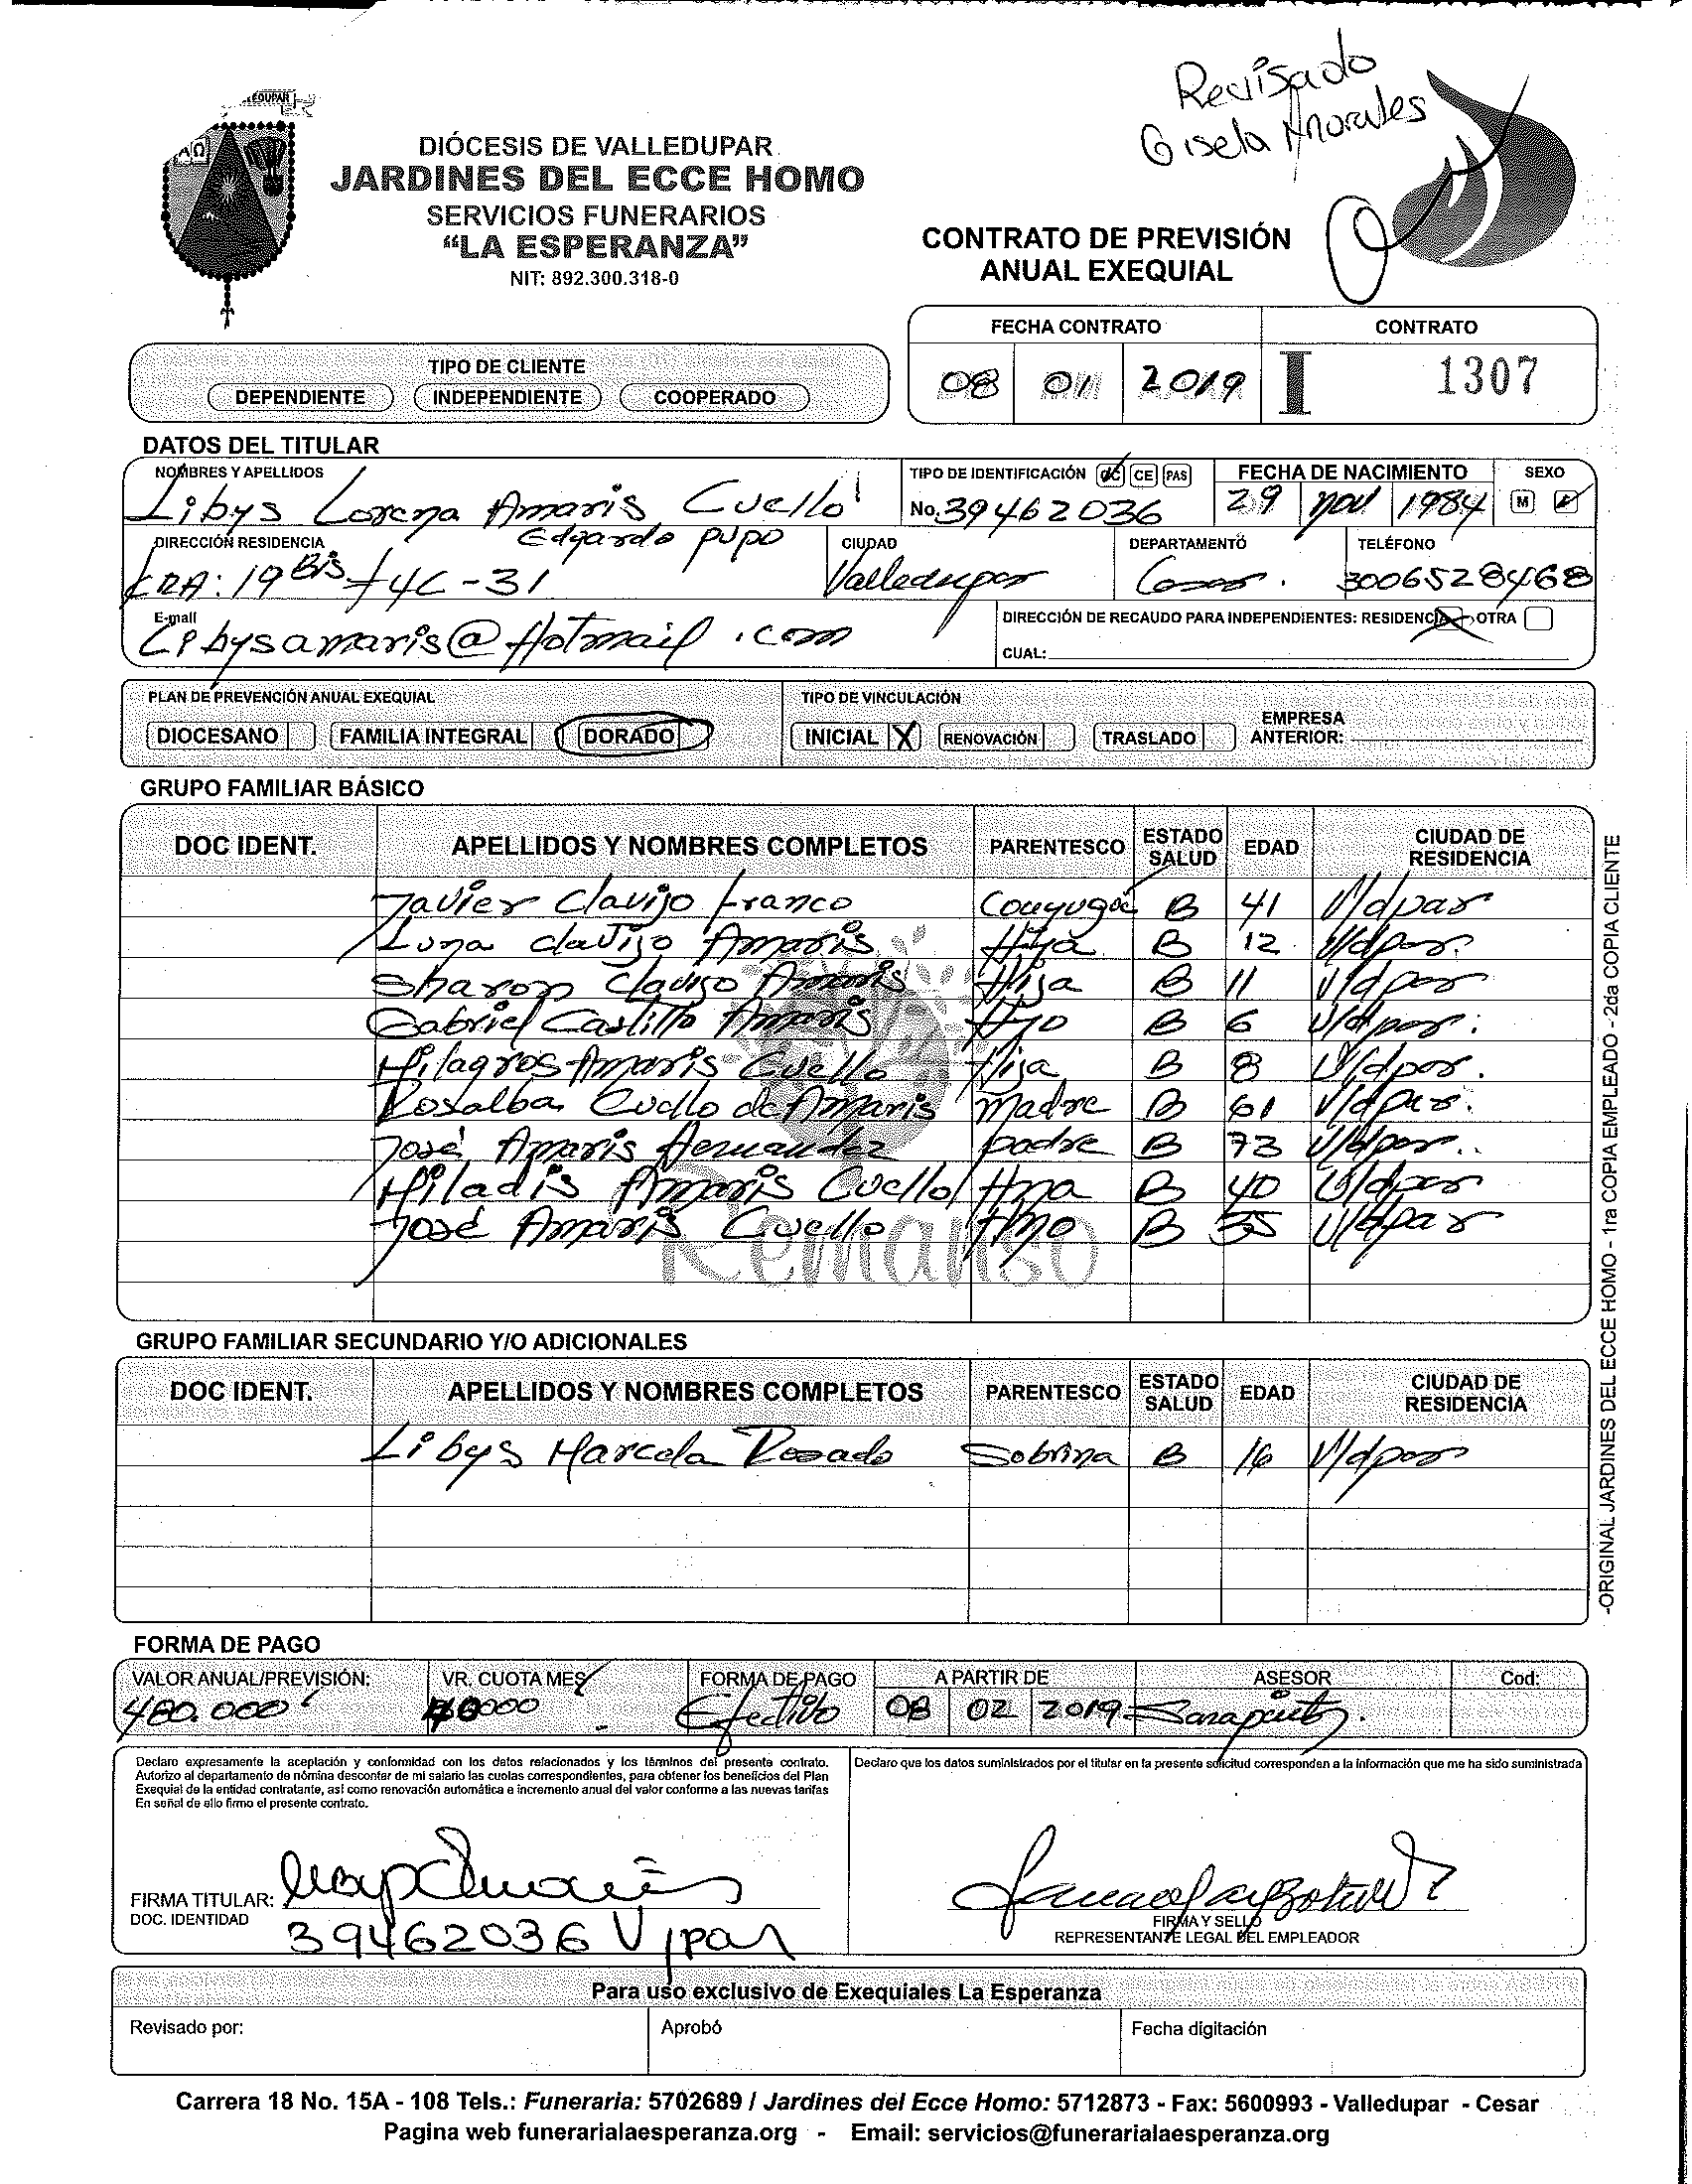 Revisado
Gisela Morales
DIÓCESIS DE VALLEDUPAR
JARDINES DEL ECCE HOMO
SERVICIOS FUNERARIOS
“LA ESPERANZA”
NIT: 892.300.318-0
CONTRATO DE PREVISIÓN
ANUAL EXEQUIAL
FECHA CONTRATO CONTRATO
08 01 2019 I 1307
TIPO DE CLIENTE
DEPENDIENTE INDEPENDIENTE COOPERADO
DATOS DEL TITULAR
NOMBRES Y APELLIDOS TIPO DE IDENTIFICACIÓN CC CE PAS FECHA DE NACIMIENTO SEXO
Libys Lorena Amaris Cuello No. 39462036 29 nov 1984 M F
Edgardo pupo
DIRECCIÓN RESIDENCIA CIUDAD DEPARTAMENTO TELÉFONO
KRA: 19 Bis #4C-31 Valledupar Cesar. 3006528468
E-mail DIRECCIÓN DE RECAUDO PARA INDEPENDIENTES: RESIDENCIA OTRA
Libysamaris@Hotmail.com
CUAL:
PLAN DE PREVENCIÓN ANUAL EXEQUIAL TIPO DE VINCULACIÓN
DIOCESANO FAMILIA INTEGRAL DORADO INICIAL X RENOVACIÓN TRASLADO EMPRESA ANTERIOR:
GRUPO FAMILIAR BÁSICO
DOC IDENT. APELLIDOS Y NOMBRES COMPLETOS PARENTESCO ESTADO SALUD EDAD CIUDAD DE RESIDENCIA
Javier Clavijo Franco Conyugue B 41 V/dpar
Luna clavijo Amaris Hija B 12 V/dpar.
Sharon Clavijo Amaris Hija B 11 V/dpar
Gabriel Castillo Amaris Hijo B 6 V/dpar.
Milagros Amaris Cuello Hija B 8 V/dpar.
Rosalba Cuello de Amaris Madre B 61 V/dpar.
José Amaris Hernandez padre B 73 V/dpar..
Miladis Amaris Cuello Hna B 40 V/dpar
José Amaris Cuello Hno B 35 V/dpar
Remanso
GRUPO FAMILIAR SECUNDARIO Y/O ADICIONALES
DOC IDENT. APELLIDOS Y NOMBRES COMPLETOS PARENTESCO ESTADO SALUD EDAD CIUDAD DE RESIDENCIA
Libys Marcela Rosado Sobrina B 16 V/dpar
-ORIGINAL JARDINES DEL ECCE HOMO - 1ra COPIA EMPLEADO - 2da COPIA CLIENTE
FORMA DE PAGO
VALOR ANUAL/PREVISIÓN: VR. CUOTA MES FORMA DE PAGO A PARTIR DE ASESOR Cod:
480.000 40000 Efectivo 08 02 2019
Declaro expresamente la aceptación y conformidad con los datos relacionados y los términos del presente contrato.
Autorizo al departamento de nómina descontar de mi salario las cuotas correspondientes, para obtener los beneficios del Plan
Exequial de la entidad contratante, así como renovación automática e incremento anual del valor conforme a las nuevas tarifas
En señal de ello firmo el presente contrato.
Declaro que los datos suministrados por el titular en la presente solicitud corresponden a la información que me ha sido suministrada
FIRMA TITULAR:
DOC. IDENTIDAD 39462036 V/par
FIRMA Y SELLO
REPRESENTANTE LEGAL DEL EMPLEADOR
Para uso exclusivo de Exequiales La Esperanza
Revisado por: Aprobó Fecha digitación
Carrera 18 No. 15A - 108 Tels.: Funeraria: 5702689 / Jardines del Ecce Homo: 5712873 - Fax: 5600993 - Valledupar - Cesar
Pagina web funerarialaesperanza.org - Email: servicios@funerarialaesperanza.org